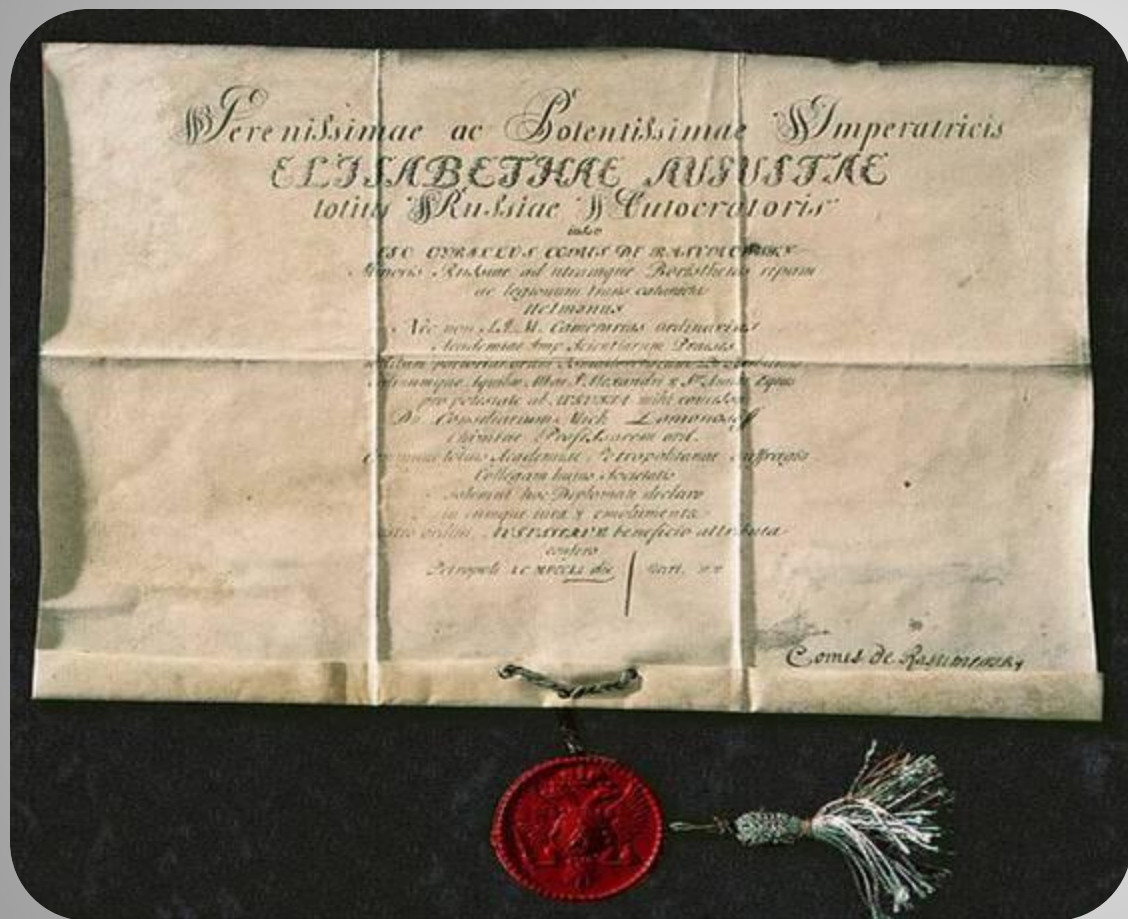 Serenissimae ac Potentissimae Imperatricis
ELISABETHAE AUGUSTAE
totius Russiae Autocratoris
iussu
COMES DE RASUMOWSKY
Minoris Russiae ad utramque Boristhenis ripam
ac legionum trans
Hetmanus
Nec non Camerarius ordinarius
Academiae Imp Scientiarum Praeses
Aquilae Albae S. Alexandri & Stae Annae Eques
pro potestate ab AUGUSTA mihi concessa
Dn Consiliarium Mich Lomonosoff
Chimiae Professorem ord.
totius Academiae Petropolitanae suffragio
Collegam huius Societatis
solemni hoc Diplomate declaro
in eumque iura & emolumenta
ordini AUGUSTAE beneficio attributa
confero
Petropoli die
Comes de Rasumowsky